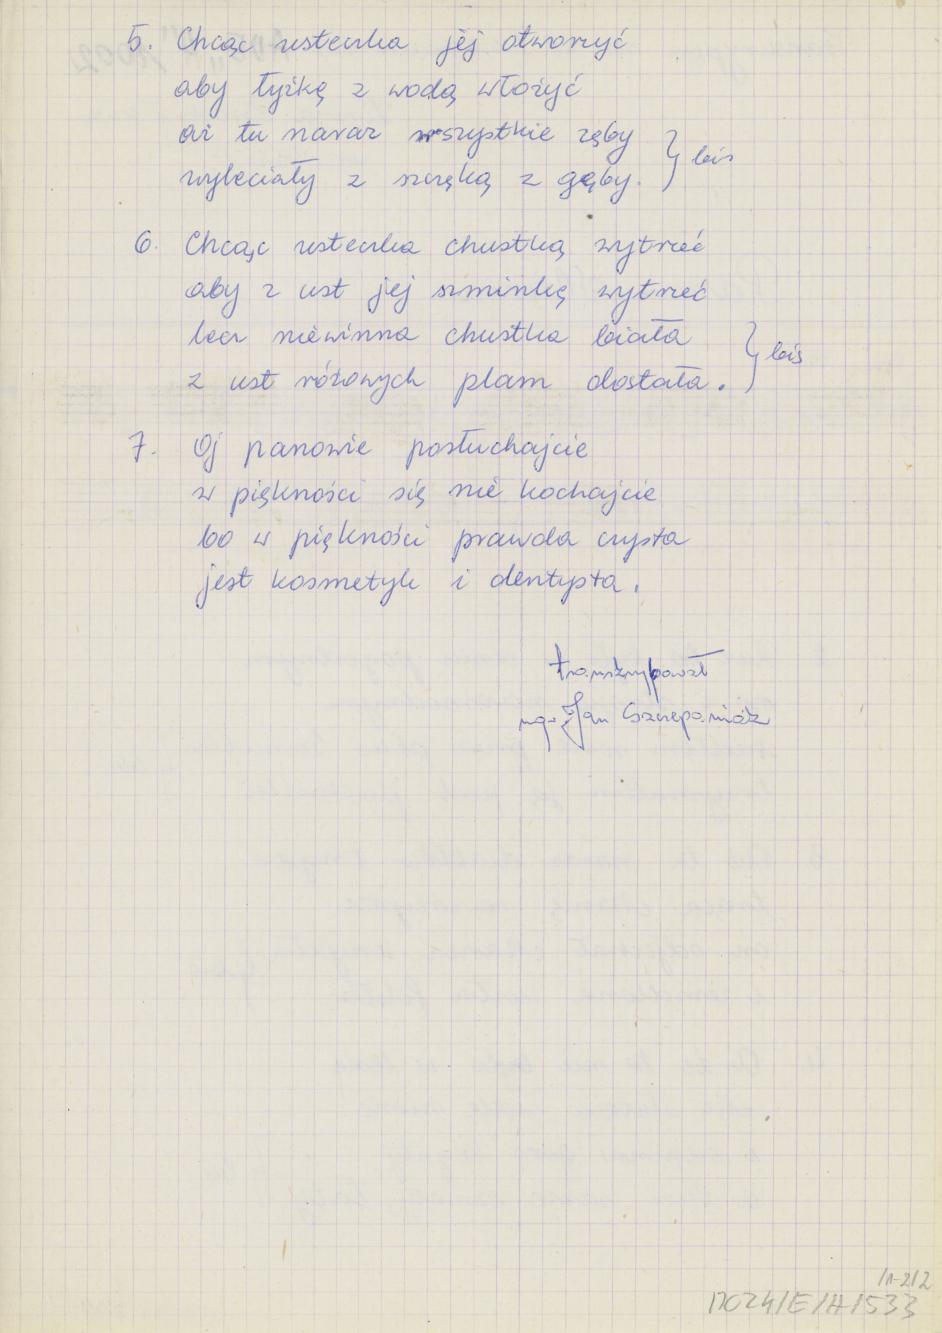 5. Chcąc usteczka jéj otworzyć
aby łyżkę z wodą włożyć
aż tu naraz wszystkie zęby
wyleciały z szczęką z gęby. } bis
6. Chcąc usteczka chustką wytrzeć
aby z ust jej szminkę wytrzeć
lecz niewinna chustka biała
z ust różowych plam dostała. } bis
7. Oj panowie posłuchajcie
w piękności się nie kochajcie
bo w piękności prawda czysta
jest kosmetyk i dentysta.
transkrybował
mgr Jan Szczepaniak
/1-2/2
17024/E/A/533